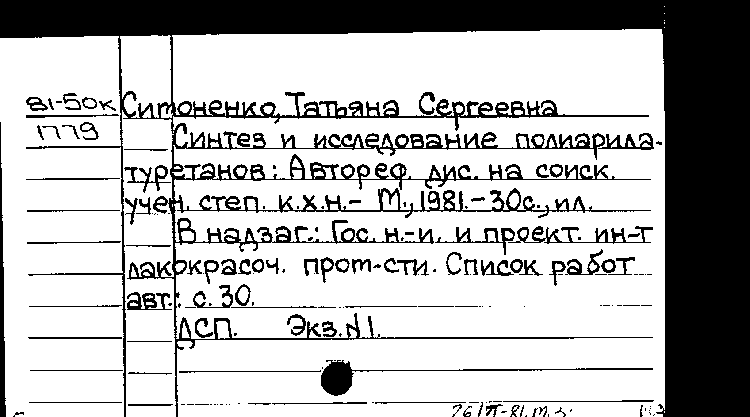 81-50к Ситоненко, Татьяна Сергеевна
1779 Синтез и исследование полиарила-
туретанов: Автореф. дис. на соиск.
учен. степ. к.х.н.- М., 1981.-30с., ил.
В надзаг.: Гос. н.-и. и проект. ин-т
лакокрасоч. пром-сти. Список работ
авт.: с. 30.
ДСП. Экз. N1.